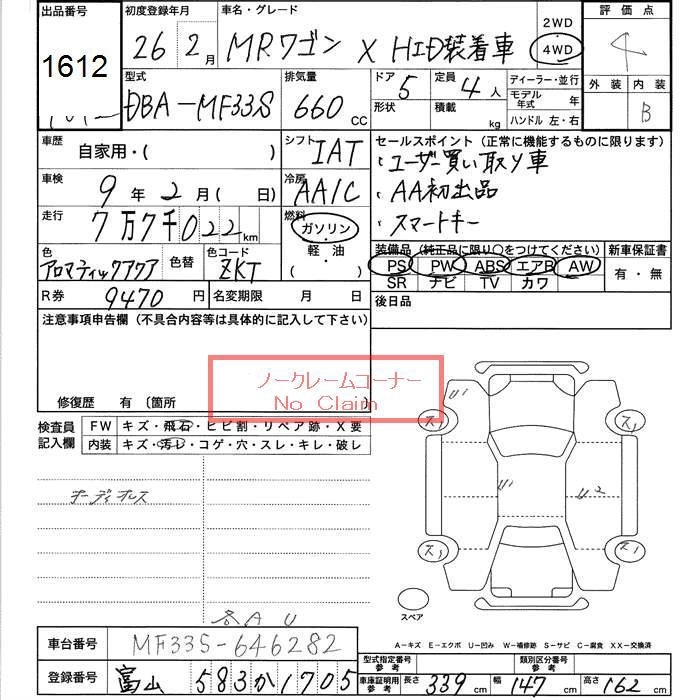 出品番号 初度登録年月 車名・グレード 2WD 4WD 評価点
1612 26年 2月 MRワゴン X HID装着車 4
型式 DBA-MF33S 排気量 660 CC ドア 5 定員 4人 ディーラー・並行 外装 内装
形状 積載 kg モデル年式 年 ハンドル 左・右 B
車歴 自家用・( ) シフト IAT セールスポイント(正常に機能するものに限ります)
・ユーザー買い取り車
車検 9年 2月( 日) 冷房 AA/C ・AA初出品
走行 7万7千022km 燃料 ガソリン・軽・油 ( ) ・スマートキー
色 アロマティックアクア 色替 色コード ZKT 装備品 (純正品に限り○をつけてください) 新車保証書
PS PW ABS エアB AW 有・無
SR ナビ TV カワ
R券 9470円 名変期限 月 日 後日品
注意事項申告欄(不具合内容等は具体的に記入して下さい)
ノークレームコーナー
No Claim
修復歴 有 (箇所
検査員記入欄 FW キズ・飛石・ヒビ割・リペア跡・X要
内装 キズ・汚レ・コゲ・穴・スレ・キレ・破レ
オーディオレス
U1
ス1 ス1
U1 U2
ス1 ス1
スペア
各AU
A-キズ E-エクボ U-凹み W-補修跡 S-サビ C-腐食 XX-交換済
車台番号 MF33S-646282
型式指定番号 参考 類別区分番号 参考
登録番号 富山 583か1705 車庫証明用参考 長さ 339cm 幅 147cm 高さ 162cm